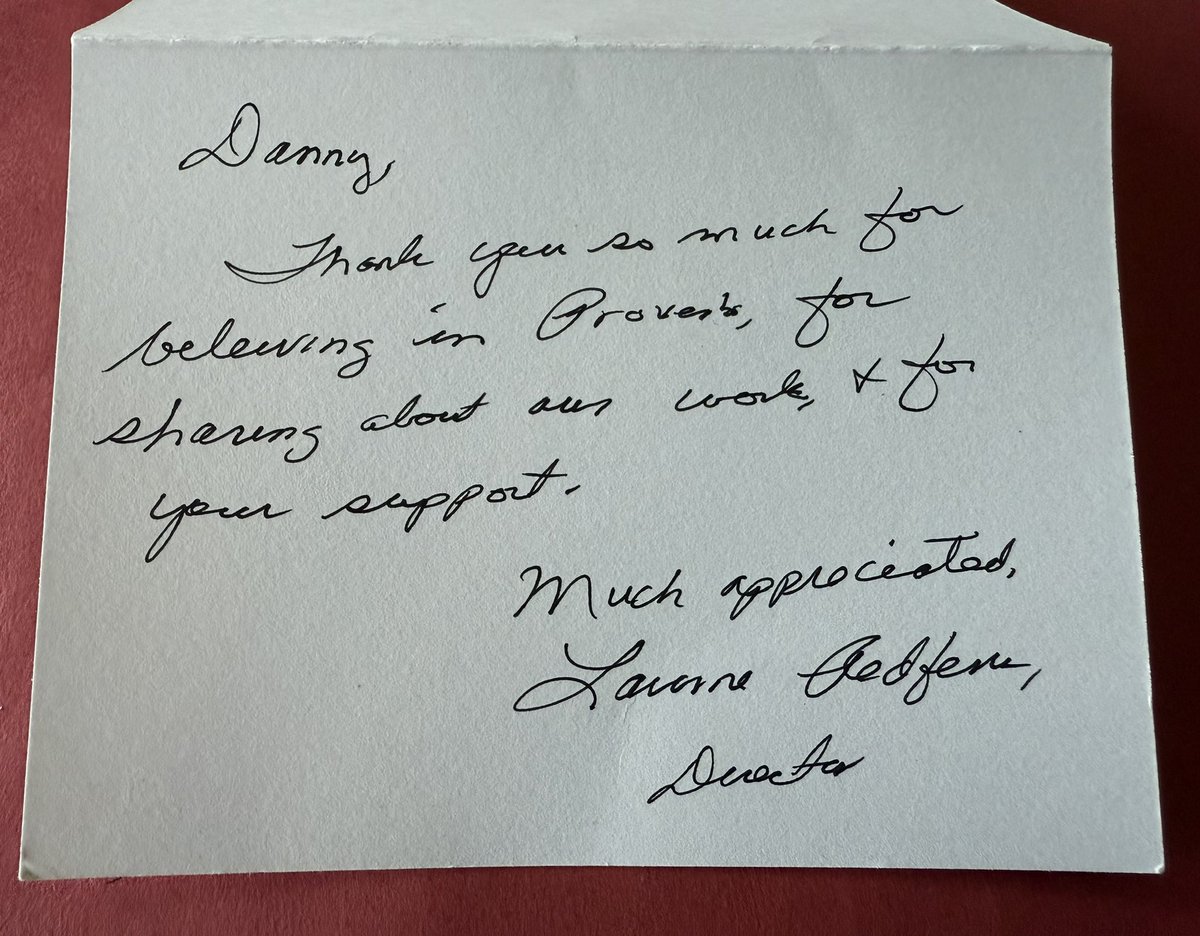 Danny,
Thank you so much for
believing in Proverbs, for
sharing about our work, & for
your support.
Much appreciated,
Redfern,
Director